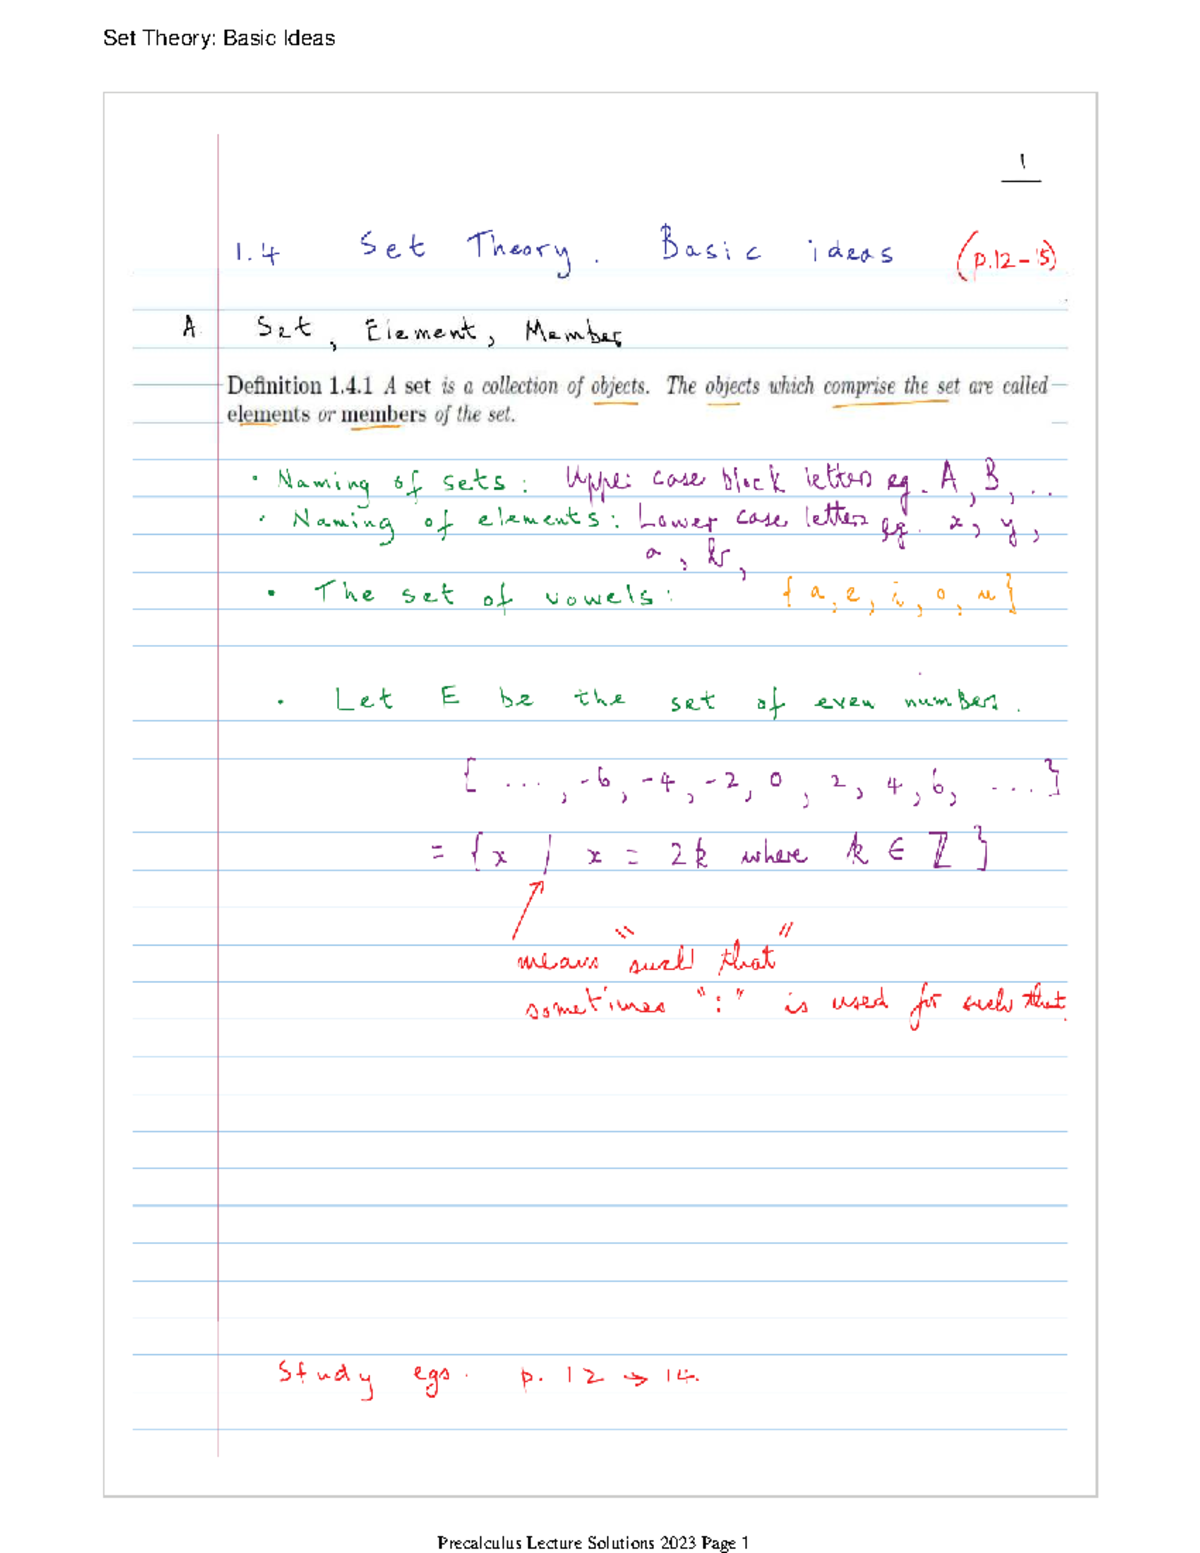 Set Theory: Basic Ideas
1
1.4 Set Theory. Basic ideas (p.12-15)
A. Set, Element, Member
Definition 1.4.1 A set is a collection of objects. The objects which comprise the set are called
elements or members of the set.
• Naming of sets: Upper case block letters eg. A, B, ...
• Naming of elements: Lower case letters eg. x, y,
a, b,
• The set of vowels: {a, e, i, o, u}
• Let E be the set of even numbers.
{ ..., -6, -4, -2, 0, 2, 4, 6, ... }
= {x | x = 2k where k ∈ ℤ }
means "such that"
sometimes ":" is used for such that.
Study egs. p. 12 → 14.
Precalculus Lecture Solutions 2023 Page 1